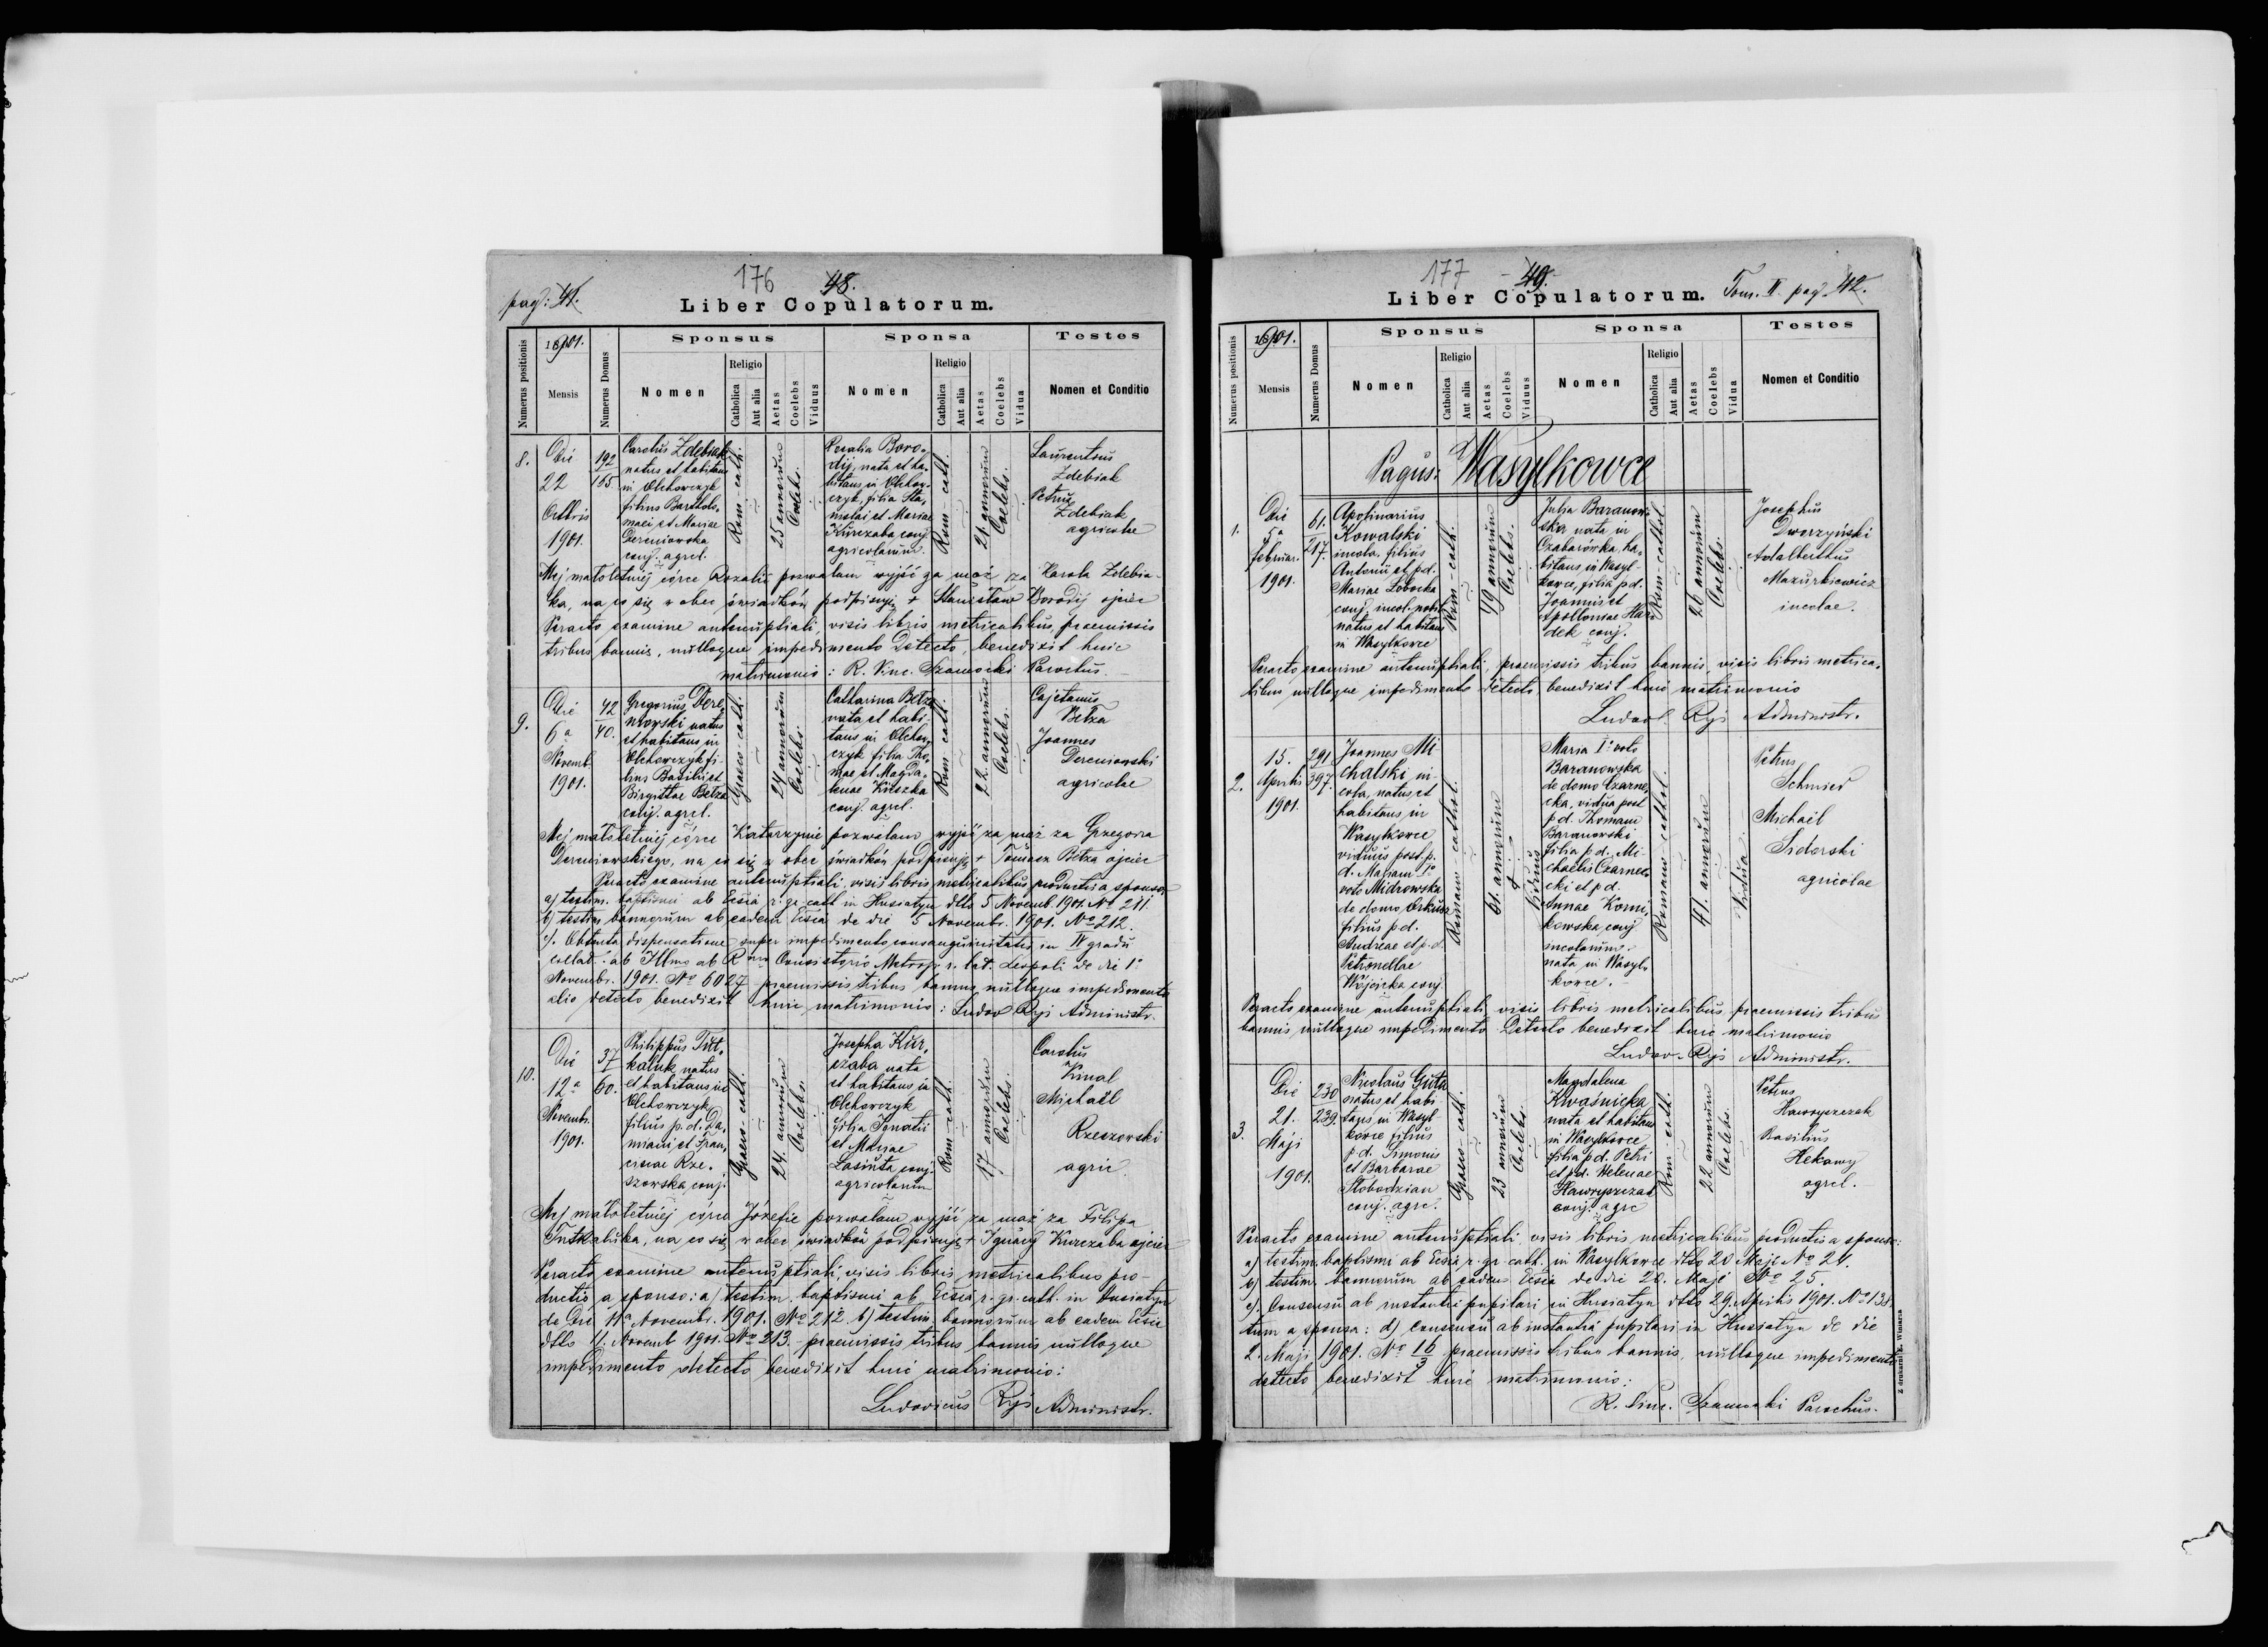 pag: 41.
176
48.
Liber Copulatorum.
Numerus positionis
1901.
Mensis
Numerus Domus
Sponsus
Nomen
Religio
Catholica
Aut alia
Aetas
Coelebs
Viduus
Sponsa
Nomen
Religio
Catholica
Aut alia
Aetas
Coelebs
Vidua
Testes
Nomen et Conditio
8.
Die
22
Octbris
1901.
192
165
Carolus Zdebiak
natus et habitans
in Olchowczyk
filius Bartholo-
maei et Mariae
Dereniowska
conj. agrcl.
Rom-cath.
25 annorum
Coelebs.
Rosalia Boro-
dij, nata et ha-
bitans in Olchow-
czyk, filia Sta-
nislai et Mariae
Kurczaba conj.
agricolarum.
Rom-cath.
21. annorum
Coelebs.
Laurentius
Zdebiak
Petrus
Zdebiak
agricolae
Mej małoletniéj córce Rozalii pozwalam wyjść za mąż za Karola Zdebia-
ka, na co się w obec świadków podpisuję + Stanisław Borodij ojciec
Peracto examine antenuptiali, visis libris metricalibus, praemissis
tribus bannis, nulloque impedimento detecto, benedixit huic
matrimonio: R. Vinc. Szamocki Parochus.
9.
Die
6a
Novemb.
1901.
42
40.
Gregorius Dere-
niowski natus
et habitans in
Olchowczyk fi-
lius Basilii et
Birgittae Betza
conj. agrcl.
Graeco-cath.
24 annorum
Coelebs.
Catharina Betza
nata et habi-
tans in Olchow-
czyk filia Tho-
mae et Magda-
lenae Kruszka
conj. agrcl.
Rom cath.
22. annorum
Coelebs.
Cajetanus
Betza
Joannes
Dereniowski
agricolae
Mej małoletniéj córce Katarzynie pozwalam wyjść za mąż za Grzegorza
Dereniowskiego, na co się w obec świadków podpisuję + Tomasz Betza ojciec
Peracto examine antenuptiali, visis libris metricalibus productis a sponso:
a) testim. baptismi ab Ecsia r. gr. cath in Husiatyn dtto 5 Novemb. 1901. No 211.
b) testim bannorum ab eadem Ecsia de die 5 Novembr. 1901. No 212.
c). Obtenta dispensatione super impedimento consanguinitatis in IV gradu
collat. ab Illmo ab Rmo Consistorio Metropo r. lat. Leopoli de die 1a
Novembr. 1901. No 6027 praemissis tribus bannis nulloque impedimento
alio detecto benedixit huic matrimonio: Ludov Ryś Administr.
10.
Die
12a
Novembr.
1901.
37
60.
Philippus Tut-
kaluk natus
et habitans in
Olchowczyk
filius p. d. Da-
miani et Fran-
ciscae Rze-
szowska, conj.
Graeco-cath.
24. annorum
Coelebs.
Josepha Kur-
czaba nata
et habitans in
Olchowczyk
filia Ignatii
et Mariae
Lasiuta conj.
agricolarum
Rom-cath.
17 annorum
Coelebs.
Carolus
Kinal
Michaël
Rzeszowski
agric
Mej małoletniéj córce Józefie pozwalam wyjść za mąż za Filipa
Tutkaluka, na co się w obec świadków podpisuję + Ignacy Kurczaba ojciec
Peracto examine antenuptiali, visis libris metricalibus pro-
ductis a sponso: a) testim. baptismi ab Ecsia r. gr. cath. in Husiatyn
de die 11a Novembr. 1901. No 212 b) testim. bannorum ab eadem Ecsia
dtto 11. Novemb 1901. No 213 - praemissis tribus bannis nulloque
impedimento detecto benedixit huic matrimonio:
Ludovicus Ryś Administr.
177
49.
Tom. II. pag. 42.
Liber Copulatorum.
Numerus positionis
1901.
Mensis
Numerus Domus
Sponsus
Nomen
Religio
Catholica
Aut alia
Aetas
Coelebs
Viduus
Sponsa
Nomen
Religio
Catholica
Aut alia
Aetas
Coelebs
Vidua
Testes
Nomen et Conditio
Pagus: Wasylkowce
1.
Die
5a
februar.
1901.
61.
217.
Apolinarius
Kowalski
incola, filius
Antonii et p.d.
Mariae Łobocka
conj. incol. nobil
natus et habitans
in Wasylkowce
Rom-cath.
49 annorum
Coelebs.
Julia Baranow-
ska nata in
Czabarówka, ha-
bitans, in Wasyl-
kowce, filia p.d.
Joannis et
Apolloniae Har-
dek conj.
Rom-cathol.
26 annorum
Coelebs.
Josephus
Dworzyński
Adalbertus
Mazurkiewicz
incolae.
Peracto examine antenuptiali, praemissis tribus bannis, visis libris metrica-
libus nulloque impedimento detecto, benedixit huic matrimonio
Ludov. Ryś Administr.
2.
15.
Aprilis
1901.
291
397.
Joannes Mi
chalski in-
cola, natus, et
habitans in
Wasylkowce
viduus post. p.
d. Mariam Io
voto Midrowska
de domo Orkusz
filius p.d.
Andreae et p.d.
Petronellae
Wójcicka conj.
Romano cathol.
61. annorum
Viduus
Maria Io voto
Baranowska
de domo Czarne-
cka, vidua post
p.d. Thomam
Baranowski
filia p.d. Mi-
chaelis Czarne-
cki et p d.
Annae Korni-
kowska, conj
incolarum
nata in Wasyl-
kowce.
Romano-cathol.
41. annorum
Vidua
Petrus
Schmied
Michaël
Siderski
agricolae
Peracto examine antenuptiali, visis libris metricalibus praemissis tribus
bannis nulloque impedimento detecto benedixit huic matrimonio
Ludov. Ryś Administr.
3.
Die
21.
Maji
1901.
230
239.
Nicolaus Guta
natus et habi
tans in Wasyl
kowce filius
p.d. Simonis
et Barbarae
Słobodzian
conj. agrc.
Graeco-cath.
23 annorum
Coelebs.
Magdalena
Kwaśnicka
nata et habitans
in Wasylkowce
filia p.d. Petri
et p.d. Helenae
Hawryszczak
conj. agrc
Rom-cath.
22 annorum
Coelebs.
Petrus
Hawryszczak
Basilius
Hekawy
agrcl.
Peracto examine antenuptiali visis libris metricalibus productis a sponso:
a) testim. baptismi ab Ecsia r. gr cath. in Wasylkowce dtto 20 Maji No 24.
b) testim. bannorum ab eadem Ecsia de die 20. Maji No 25.
c). Consensu ab instantia pupilari in Husiatyn dtto 29. Aprilis 1901. No 138
tum a sponsa: d) consensu ab instantiá pupilari in Husiatyn de die
2. Maji 1901. No 16/3 praemissis tribus bannis, nulloque impedimento
detecto benedixit huic matrimonio:
R. Vinc. Szamocki Parochus.
Z drukarni E. Winiarza